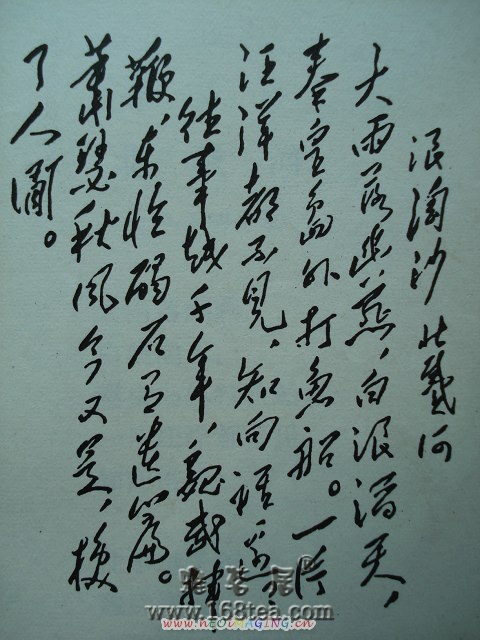 浪淘沙 北戴河
大雨落幽燕，白浪滔天，
秦皇岛外打鱼船。一片
汪洋都不见，知向谁边？
往事越千年，魏武挥
鞭，东临碣石有遗篇。
萧瑟秋风今又是，换
了人间。
www.168tea.com
www.neoimaging.cn